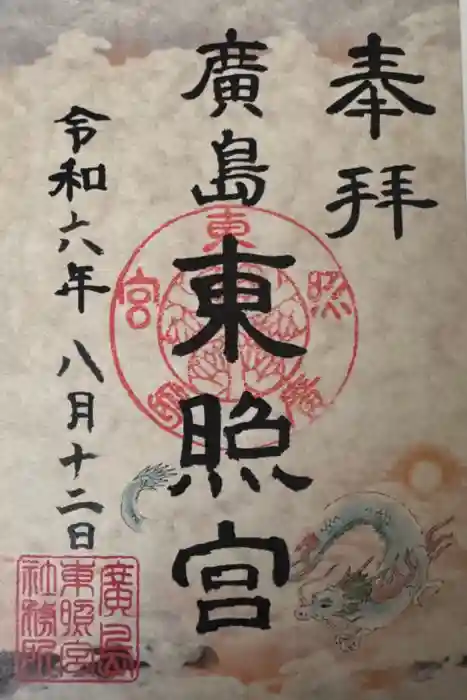 奉拝
廣島東照宮
令和六年八月十二日
東照宮
廣島
東照宮
社務所